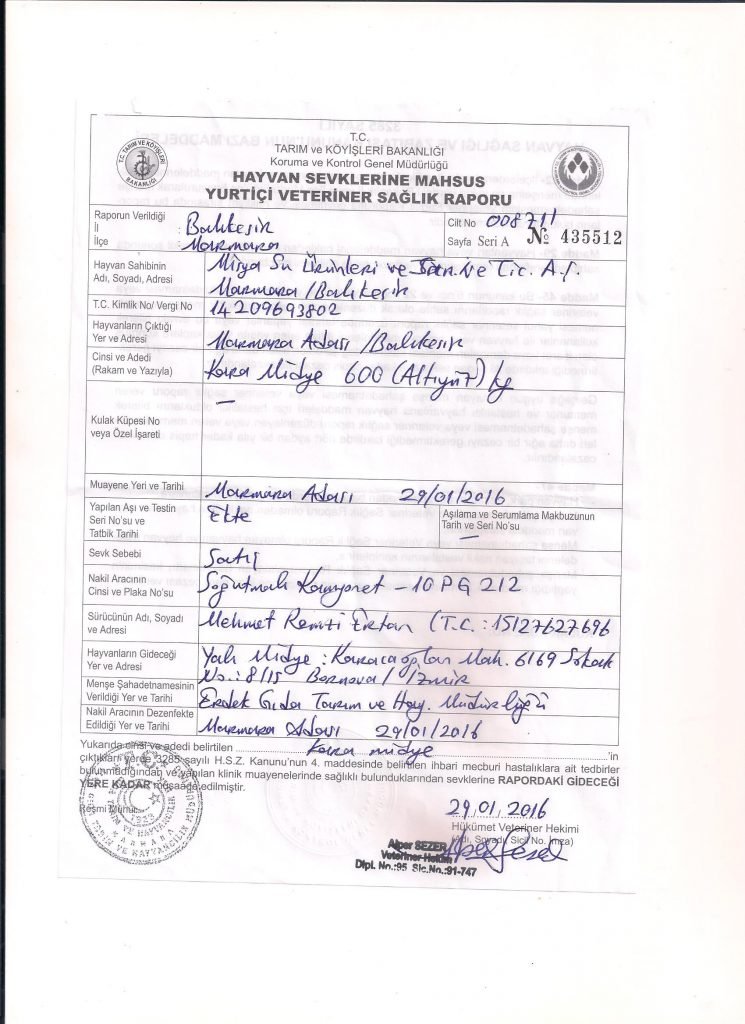 T.C.
TARIM VE KÖYİŞLERİ BAKANLIĞI
Koruma ve Kontrol Genel Müdürlüğü
HAYVAN SEVKLERİNE MAHSUS
YURTİÇİ VETERİNER SAĞLIK RAPORU
T.C. TARIM VE KÖYİŞLERİ BAKANLIĞI
Raporun Verildiği
İl : Balıkesir
İlçe Marmara
Cilt No 008711
Sayfa Seri A № 435512
Hayvan Sahibinin
Adı, Soyadı, Adresi
Mirya Su Ürünleri ve San. ve Tic. A.Ş.
Marmara / Balıkesir
T.C. Kimlik No/ Vergi No 14209693802
Hayvanların Çıktığı
Yer ve Adresi
Marmara Adası / Balıkesir
Cinsi ve Adedi
(Rakam ve Yazıyla)
Kara Midye 600 (Altıyüz) kg
Kulak Küpesi No
veya Özel İşareti
—
Muayene Yeri ve Tarihi Marmara Adası 29/01/2016
Yapılan Aşı ve Testin
Seri No'su ve
Tatbik Tarihi
Ekte
Aşılama ve Serumlama Makbuzunun
Tarih ve Seri No'su
—
Sevk Sebebi Satış
Nakil Aracının
Cinsi ve Plaka No'su
Soğutmalı Kamyonet - 10 PG 212
Sürücünün Adı, Soyadı
ve Adresi
Mehmet Remzi Ertan (T.C. : 15127627696
Hayvanların Gideceği
Yer ve Adresi
Yalı Midye : Karacaoğlan Mah. 6169 Sokak
No.: 8/15 Bornova / İzmir
Menşe Şahadetnamesinin
Verildiği Yer ve Tarihi
Erdek Gıda Tarım ve Hay. Müdürlüğü
Nakil Aracının Dezenfekte
Edildiği Yer ve Tarihi
Marmara Adası 29/01/2016
Yukarıda cinsi ve adedi belirtilen kara midye 'in
çıktıkları yerde 3285 sayılı H.S.Z. Kanunu'nun 4. maddesinde belirtilen ihbari mecburi hastalıklara ait tedbirler
bulunmadığından ve yapılan klinik muayenelerinde sağlıklı bulunduklarından sevklerine RAPORDAKİ GİDECEĞİ
YERE KADAR müsaade edilmiştir.
Resmi Mühür
29.01.2016
Hükümet Veteriner Hekimi
(Adı, Soyadı, Sicil No. İmza)
Alper SEZER
Veteriner Hekim
Dipl. No.:95 Sic.No.:91-747